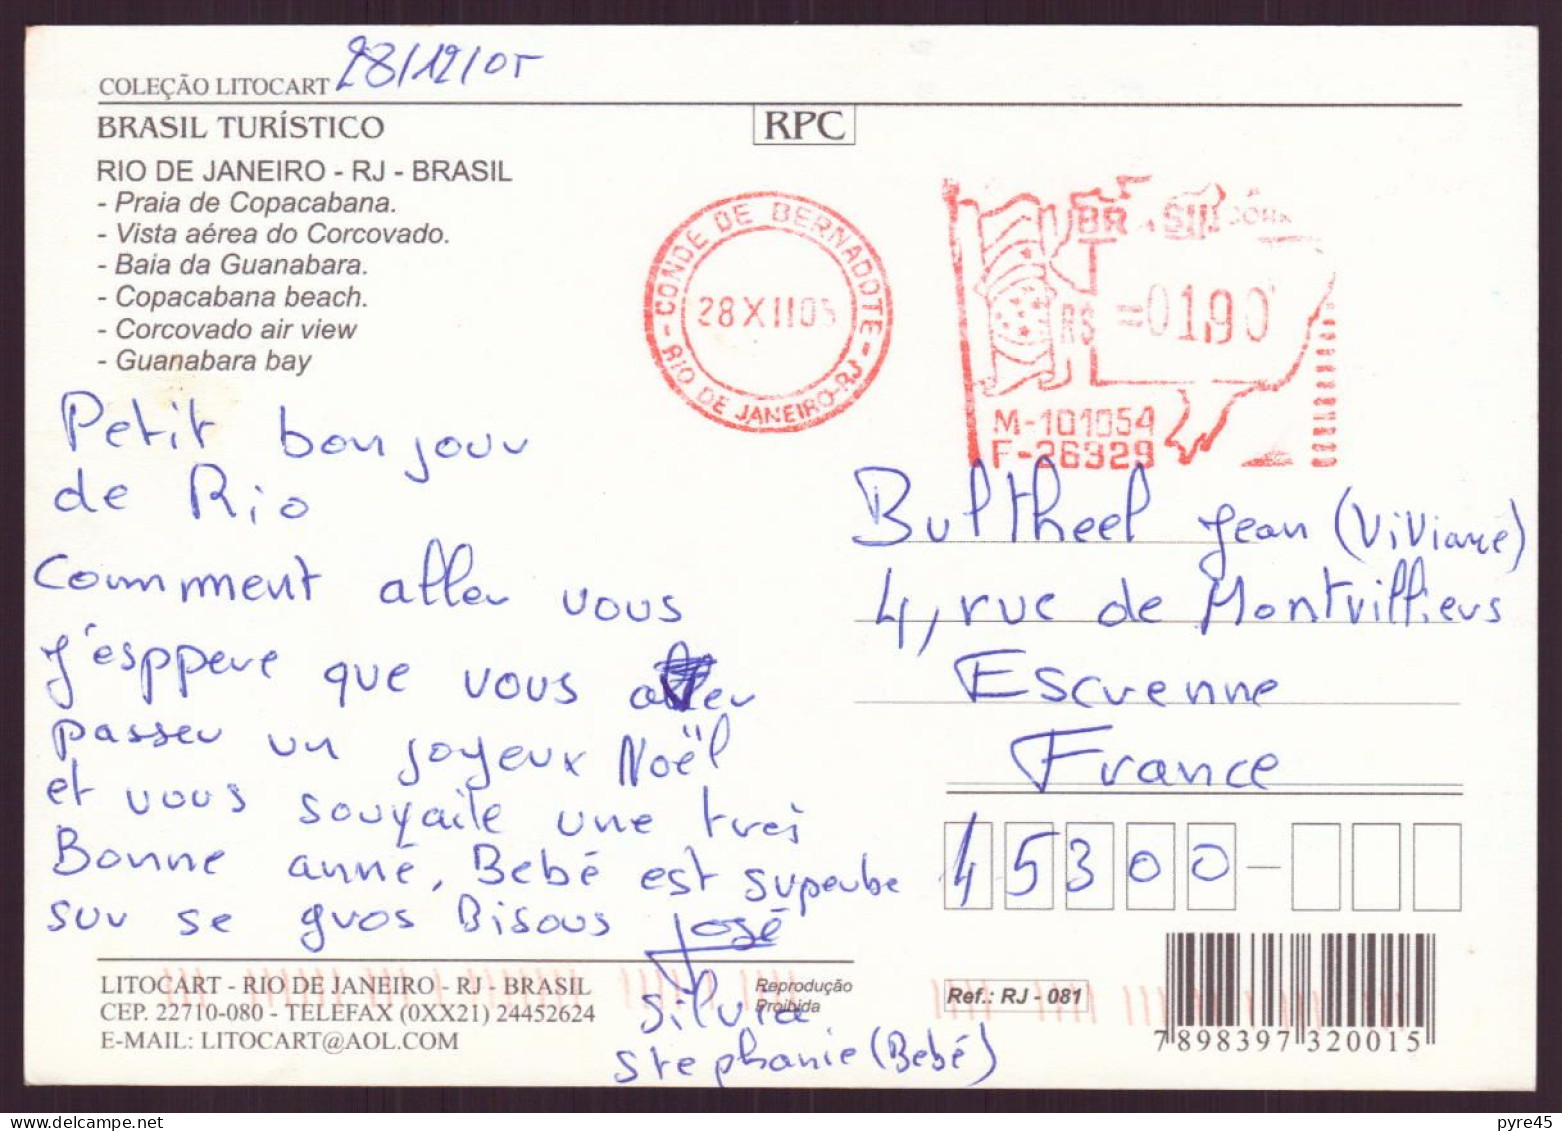 28/12/05
COLEÇÃO LITOCART
BRASIL TURÍSTICO
RPC
RIO DE JANEIRO - RJ - BRASIL
- Praia de Copacabana.
- Vista aérea do Corcovado.
- Baia da Guanabara.
- Copacabana beach.
- Corcovado air view
- Guanabara bay
CONDE DE BERNADOTE
28 XII 05
- RIO DE JANEIRO-RJ -
BRASIL
R$ =01,90
M-101054
F-26329
Petit bonjour
de Rio
Comment aller vous
j'esppere que vous
passer un joyeux Noël
et vous souyaite une tres
Bonne anné, Bebé est superbe
sur se gros Bisous José
Silvia
stephanie (Bebé)
Bultheel Jean (Viviane)
4, rue de Montvilliers
Escrenne
France
45300
LITOCART - RIO DE JANEIRO - RJ - BRASIL
CEP. 22710-080 - TELEFAX (0XX21) 24452624
E-MAIL: LITOCART@AOL.COM
Reprodução
Proibida
Ref.: RJ - 081
7 898397 320015
pyre45